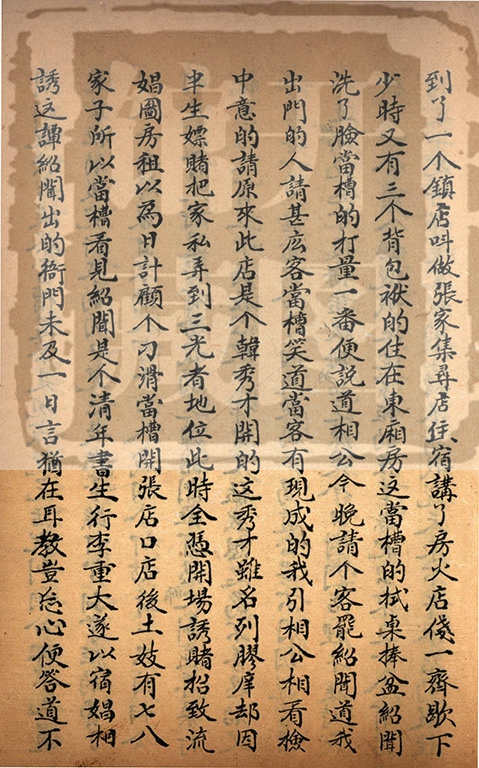 到了一个鎮店叫做張家集尋店住宿講了房火店僟一齊歇下
少時又有三个背包袱的住在東廂房这當槽的拭桌捧盆紹聞
洗了臉當槽的打量一番便説道相公今晚請个客罷紹聞道我
出門的人請甚庅客當槽笑道當客有現成的我引相公相看檢
中意的請原來此店是个韓秀才開的这秀才雖名列膠庠却因
半生嫖賭把家私弄到三光者地位此時全慿開場誘賭招致流
娼圖房租以為日計顧个刁滑當槽開張店口店後土妓有七八
家子所以當槽看見紹聞是个清年書生行李重大遂以宿娼相
誘这譚紹聞出的衙門未及一日言猶在耳教豈忘心便答道不